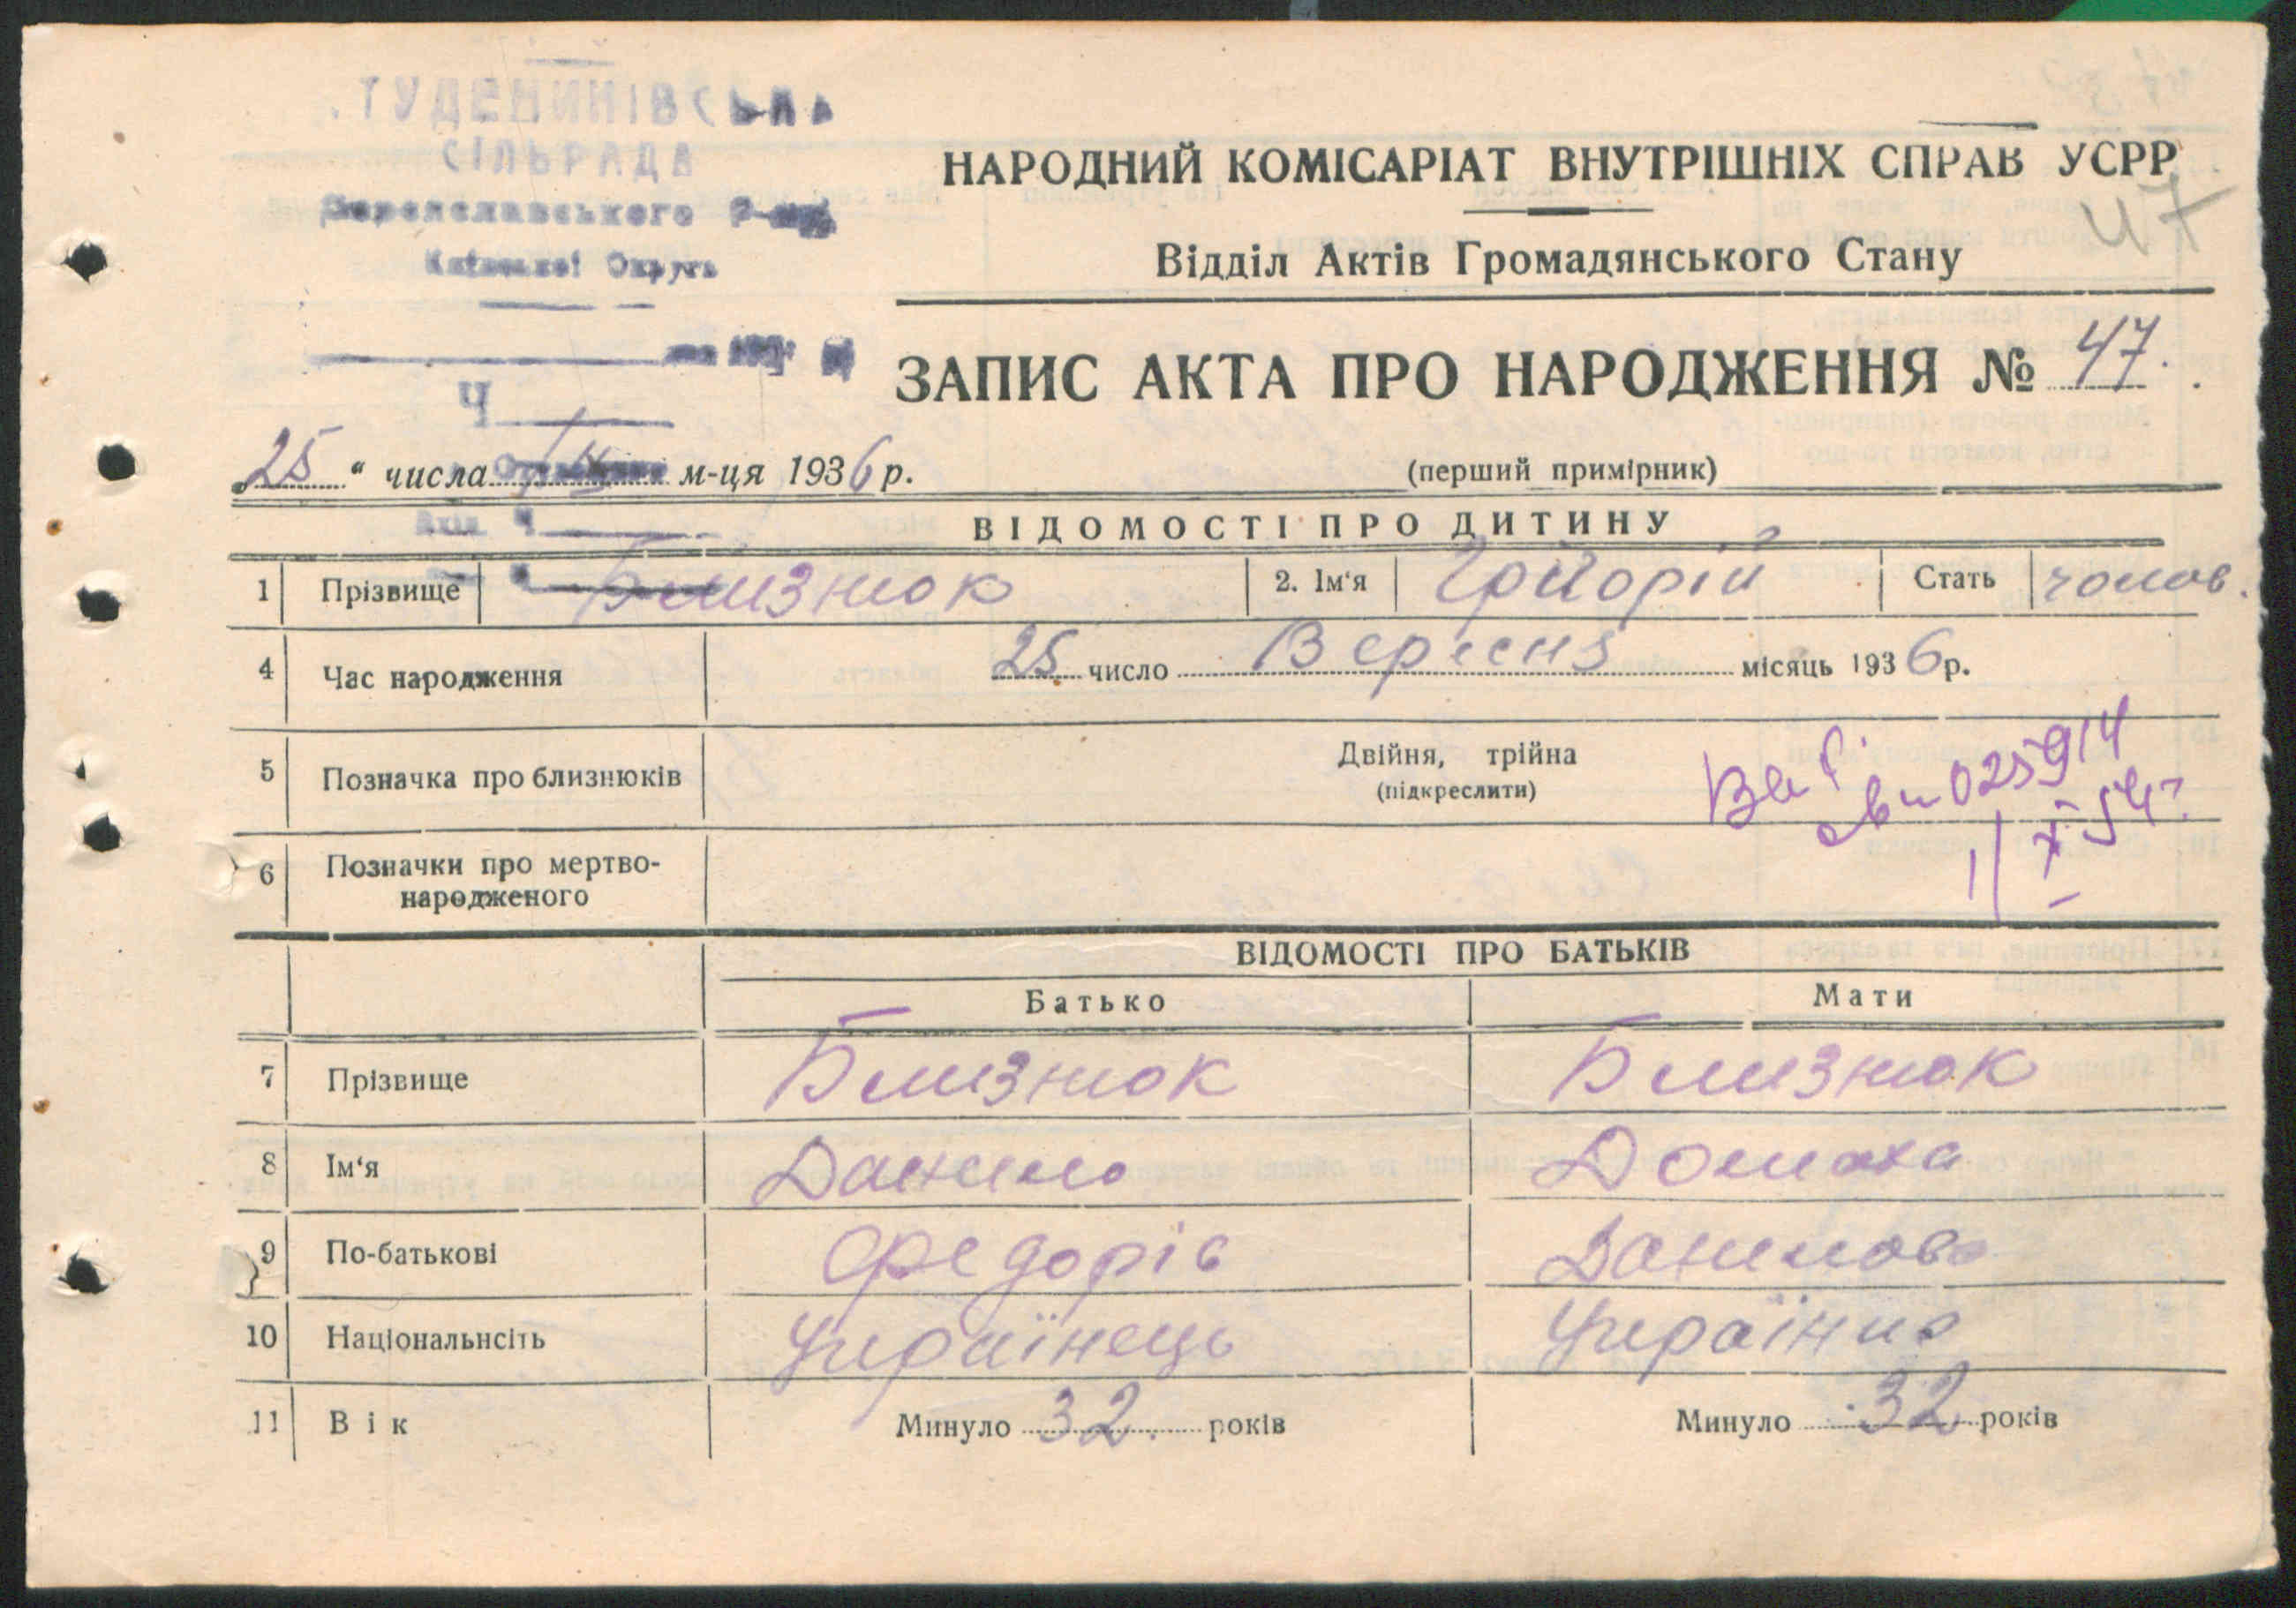 СТУДЕНИКІВСЬКА
СІЛЬРАДА
Переяславського Р-ну
Київської Округи
47
НАРОДНИЙ КОМІСАРІАТ ВНУТРІШНІХ СПРАВ УСРР
Відділ Актів Громадянського Стану
ЗАПИС АКТА ПРО НАРОДЖЕННЯ № 47.
Ч
„25“ числа м-ця 1936 р.
(перший примірник)
ВІДОМОСТІ ПРО ДИТИНУ
1 Прізвище Близнюк 2. Ім‘я Григорій Стать чолов.
4 Час народження 25 число Вересня місяць 1936 р.
5 Позначка про близнюків Двійня, трійна
(підкреслити)
025914
6 Позначки про мертво-
народженого
ВІДОМОСТІ ПРО БАТЬКІВ
Батько Мати
7 Прізвище Близнюк Близнюк
8 Ім‘я Данило Домаха
9 По-батькові Федорів Данилова
10 Національнсіть Українець Українка
11 Вік Минуло 32. років Минуло 32 років